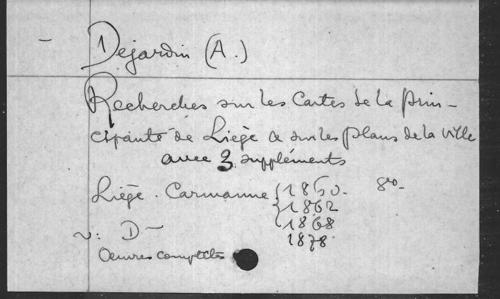 Dejardin (A.)
Recherches sur les Cartes de la Prin-
cipauté de Liège & sur les plans de la ville
avec 3 suppléments
Liège. Carmanne 1860. 8vo.
1862
1868
1878
v: D—
Oeuvres complètes